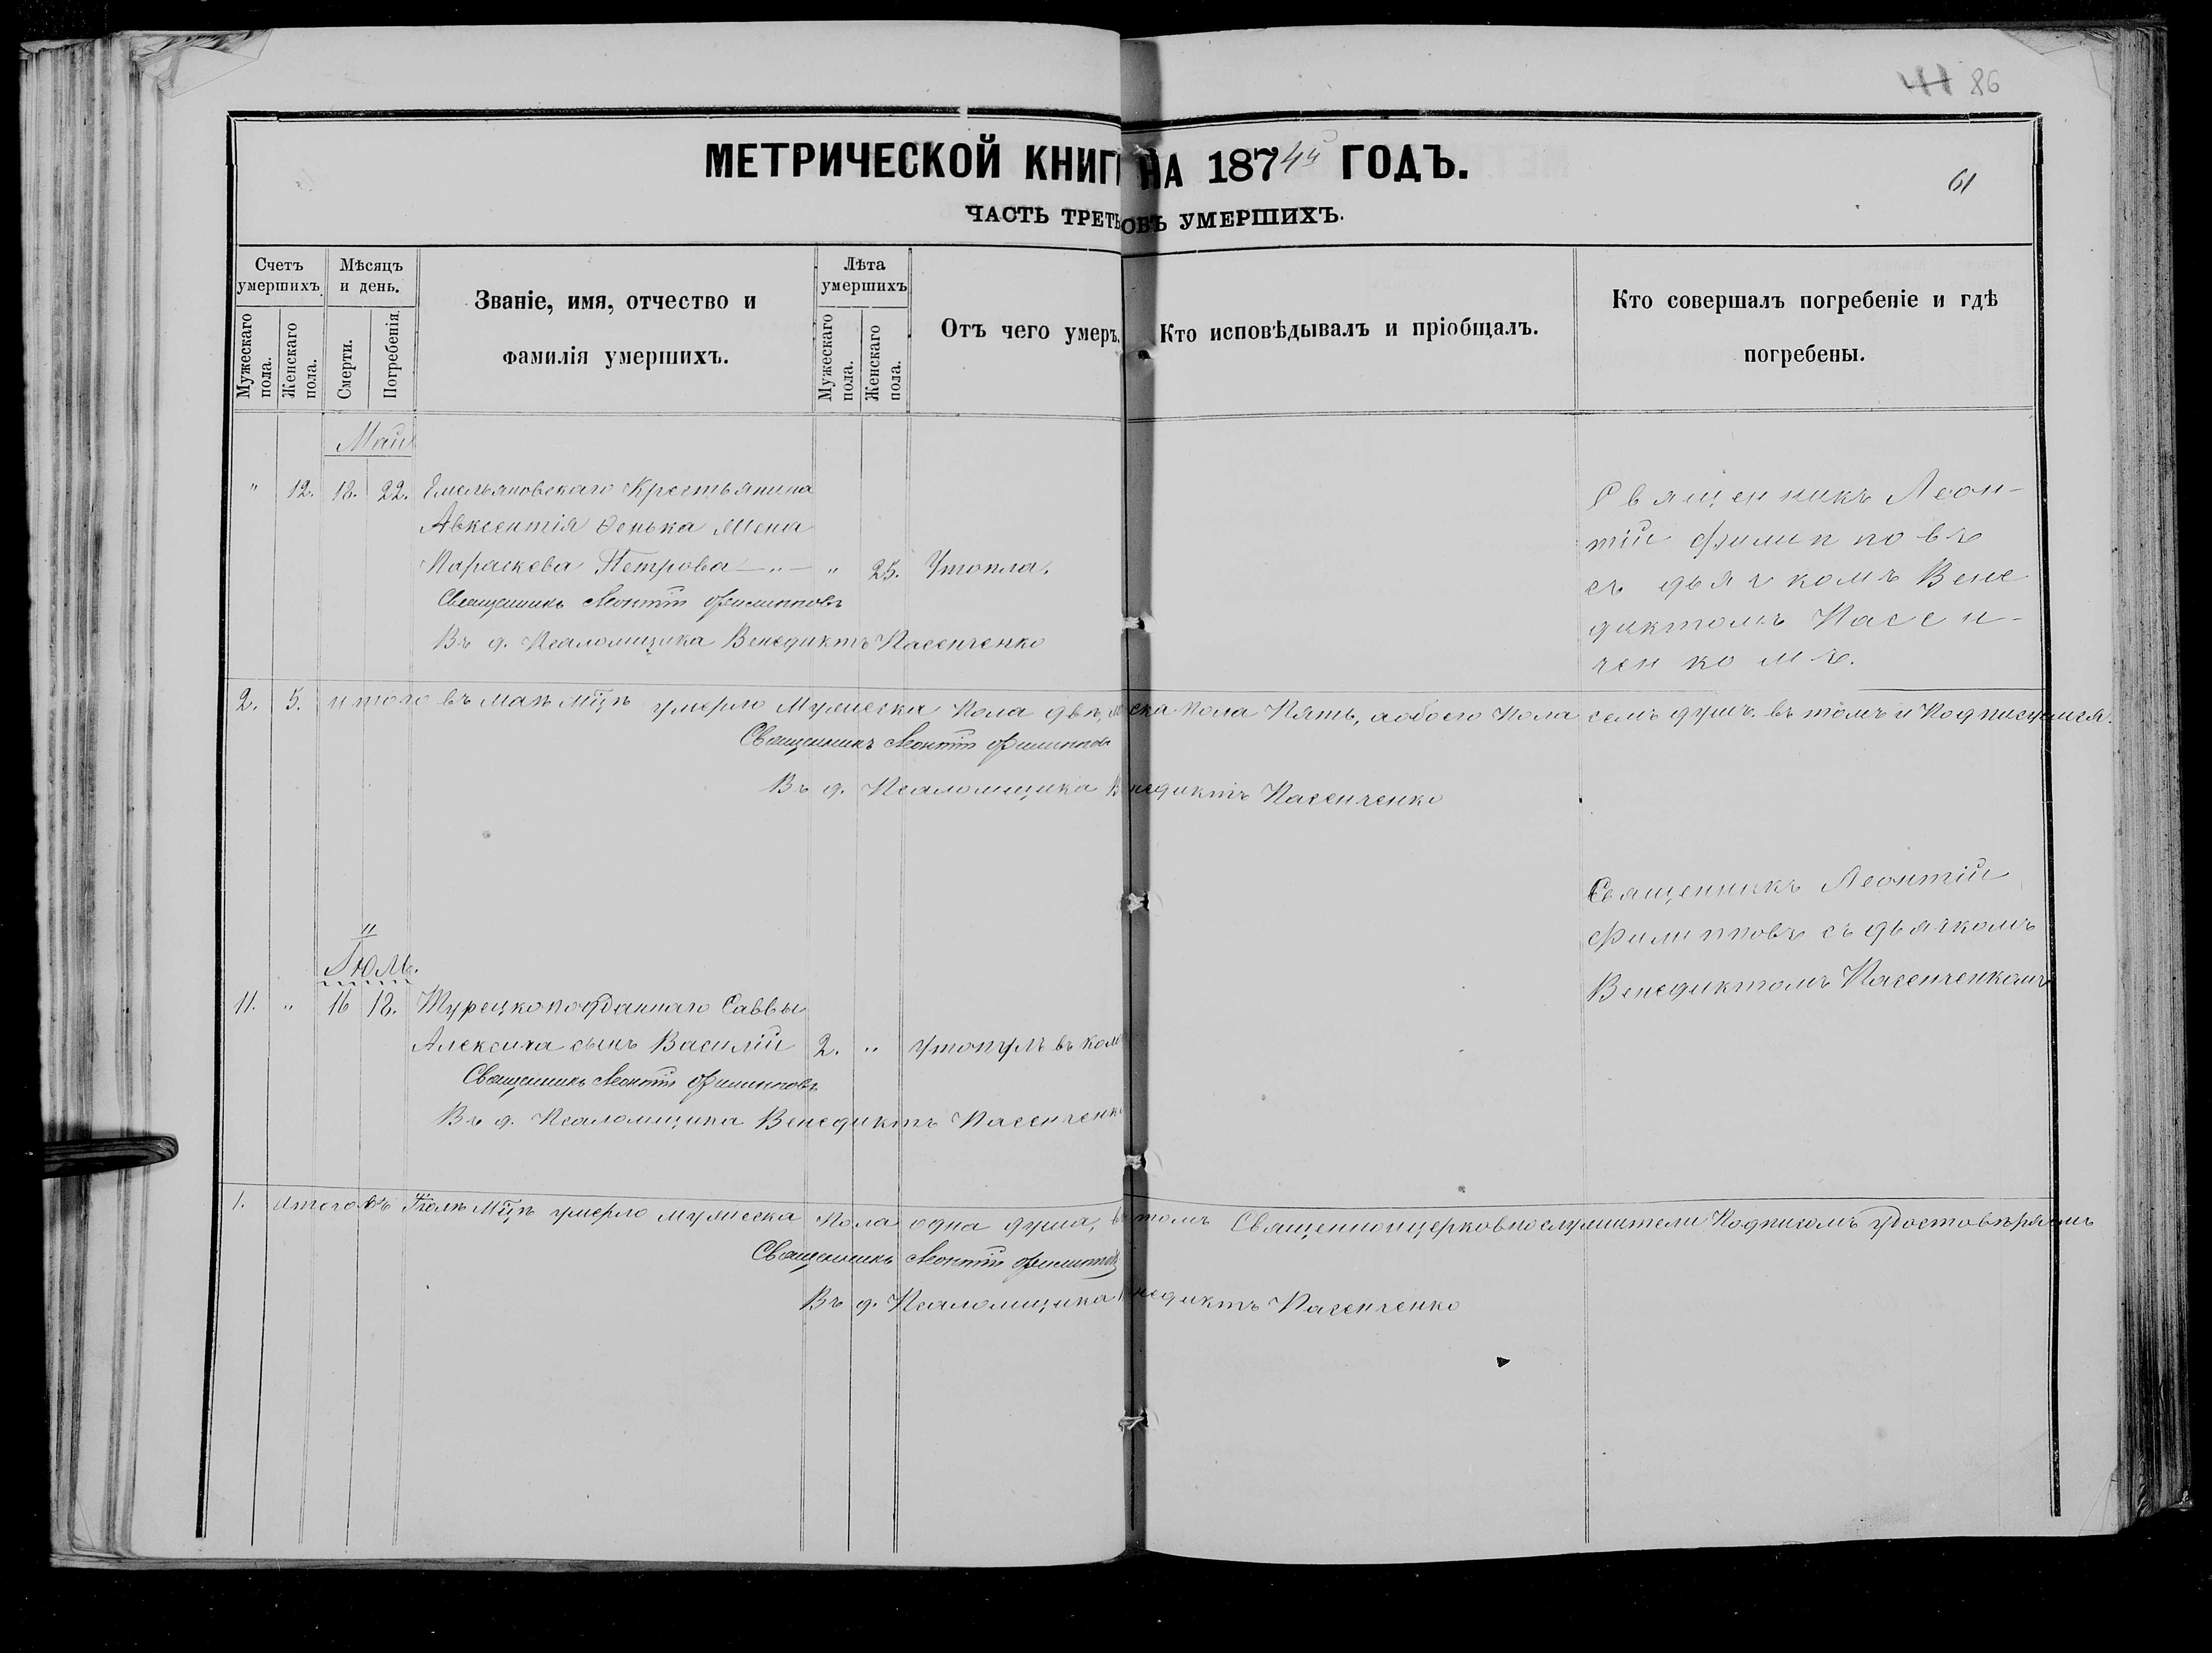 41 86
МЕТРИЧЕСКОЙ КНИГ НА 1874й ГОДЪ.
61
ЧАСТЬ ТРЕТЬ ОБЪ УМЕРШИХЪ.
Счетъ умершихъ.
Мужескаго пола.
Женскаго пола.
Мѣсяцъ и день.
Смерти.
Погребенія.
Званіе, имя, отчество и
фамилія умершихъ.
Лѣта умершихъ
Мужескаго пола.
Женскаго пола.
Отъ чего умеръ.
Кто исповѣдывалъ и пріобщалъ.
Кто совершалъ погребеніе и гдѣ
погребены.
Май
" 12. 18. 22. Емельяновскаго Крестьянина
Авксентія жена
Параскева Петрова — " — " 25. Утопла.
Священникъ Леонтій Филипповъ
Въ д. Псаломщика Венедиктъ Пасенченко
Священникъ Леон-
тій Филипповъ
съ дьячкомъ Вене
диктомъ Пасен-
ченкомъ.
2. 5. итого въ маѣ мцѣ умерло Мужеска Пола двѣ, ска Пола Пять, а обоего Пола семь душъ. въ томъ и Подписуемся.
Священникъ Леонтій Филиппов
Въ д. Псаломщика В недиктъ Пасенченко
Іюль.
11. " 16 18. Турецкоподданнаго Саввы
Алексича сынъ Василій 2. " Утопулъ въ кол
Священникъ Леонтій Филипповъ
Въ д. Псаломщика Венедиктъ Пасенченко
Священникъ Леонтій
Филипповъ съ дьячкомъ
Венедиктомъ Пасенченкомъ
1. Итого въ Іюлѣ Мцѣ умерло мужеска пола одна душа, въ томъ Священноицерковнослужители Подписомъ удостовѣряемъ
Священникъ Леонтій Филиппов
Въ д. Псаломщика недиктъ Пасенченко